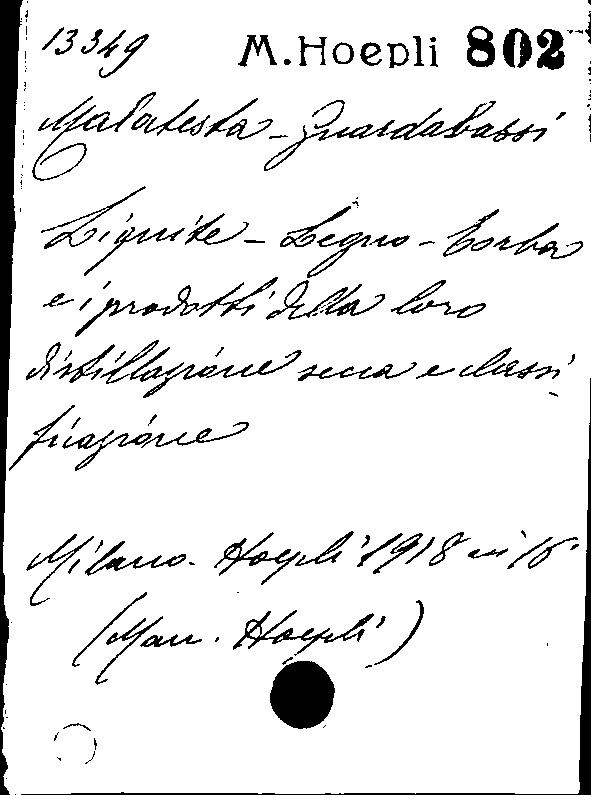 13349 M. Hoepli 802
Malatesta - Guardabassi
Lignite - Legno - Torba
e i prodotti della loro
distillazione secca e classi-
ficazione
Milano - Hoepli 1918 in 16°
(Man. Hoepli)